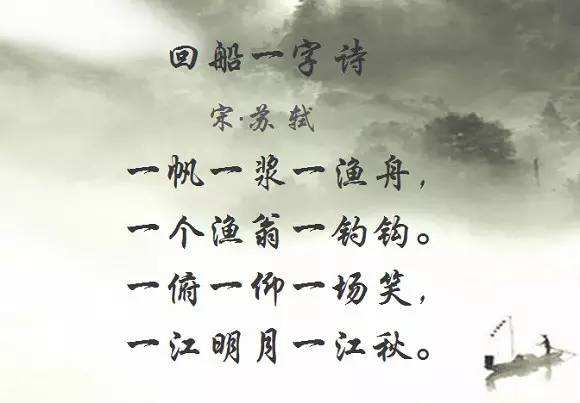 回船一字诗
宋·苏轼
一帆一浆一渔舟，
一个渔翁一钓钩。
一俯一仰一场笑，
一江明月一江秋。